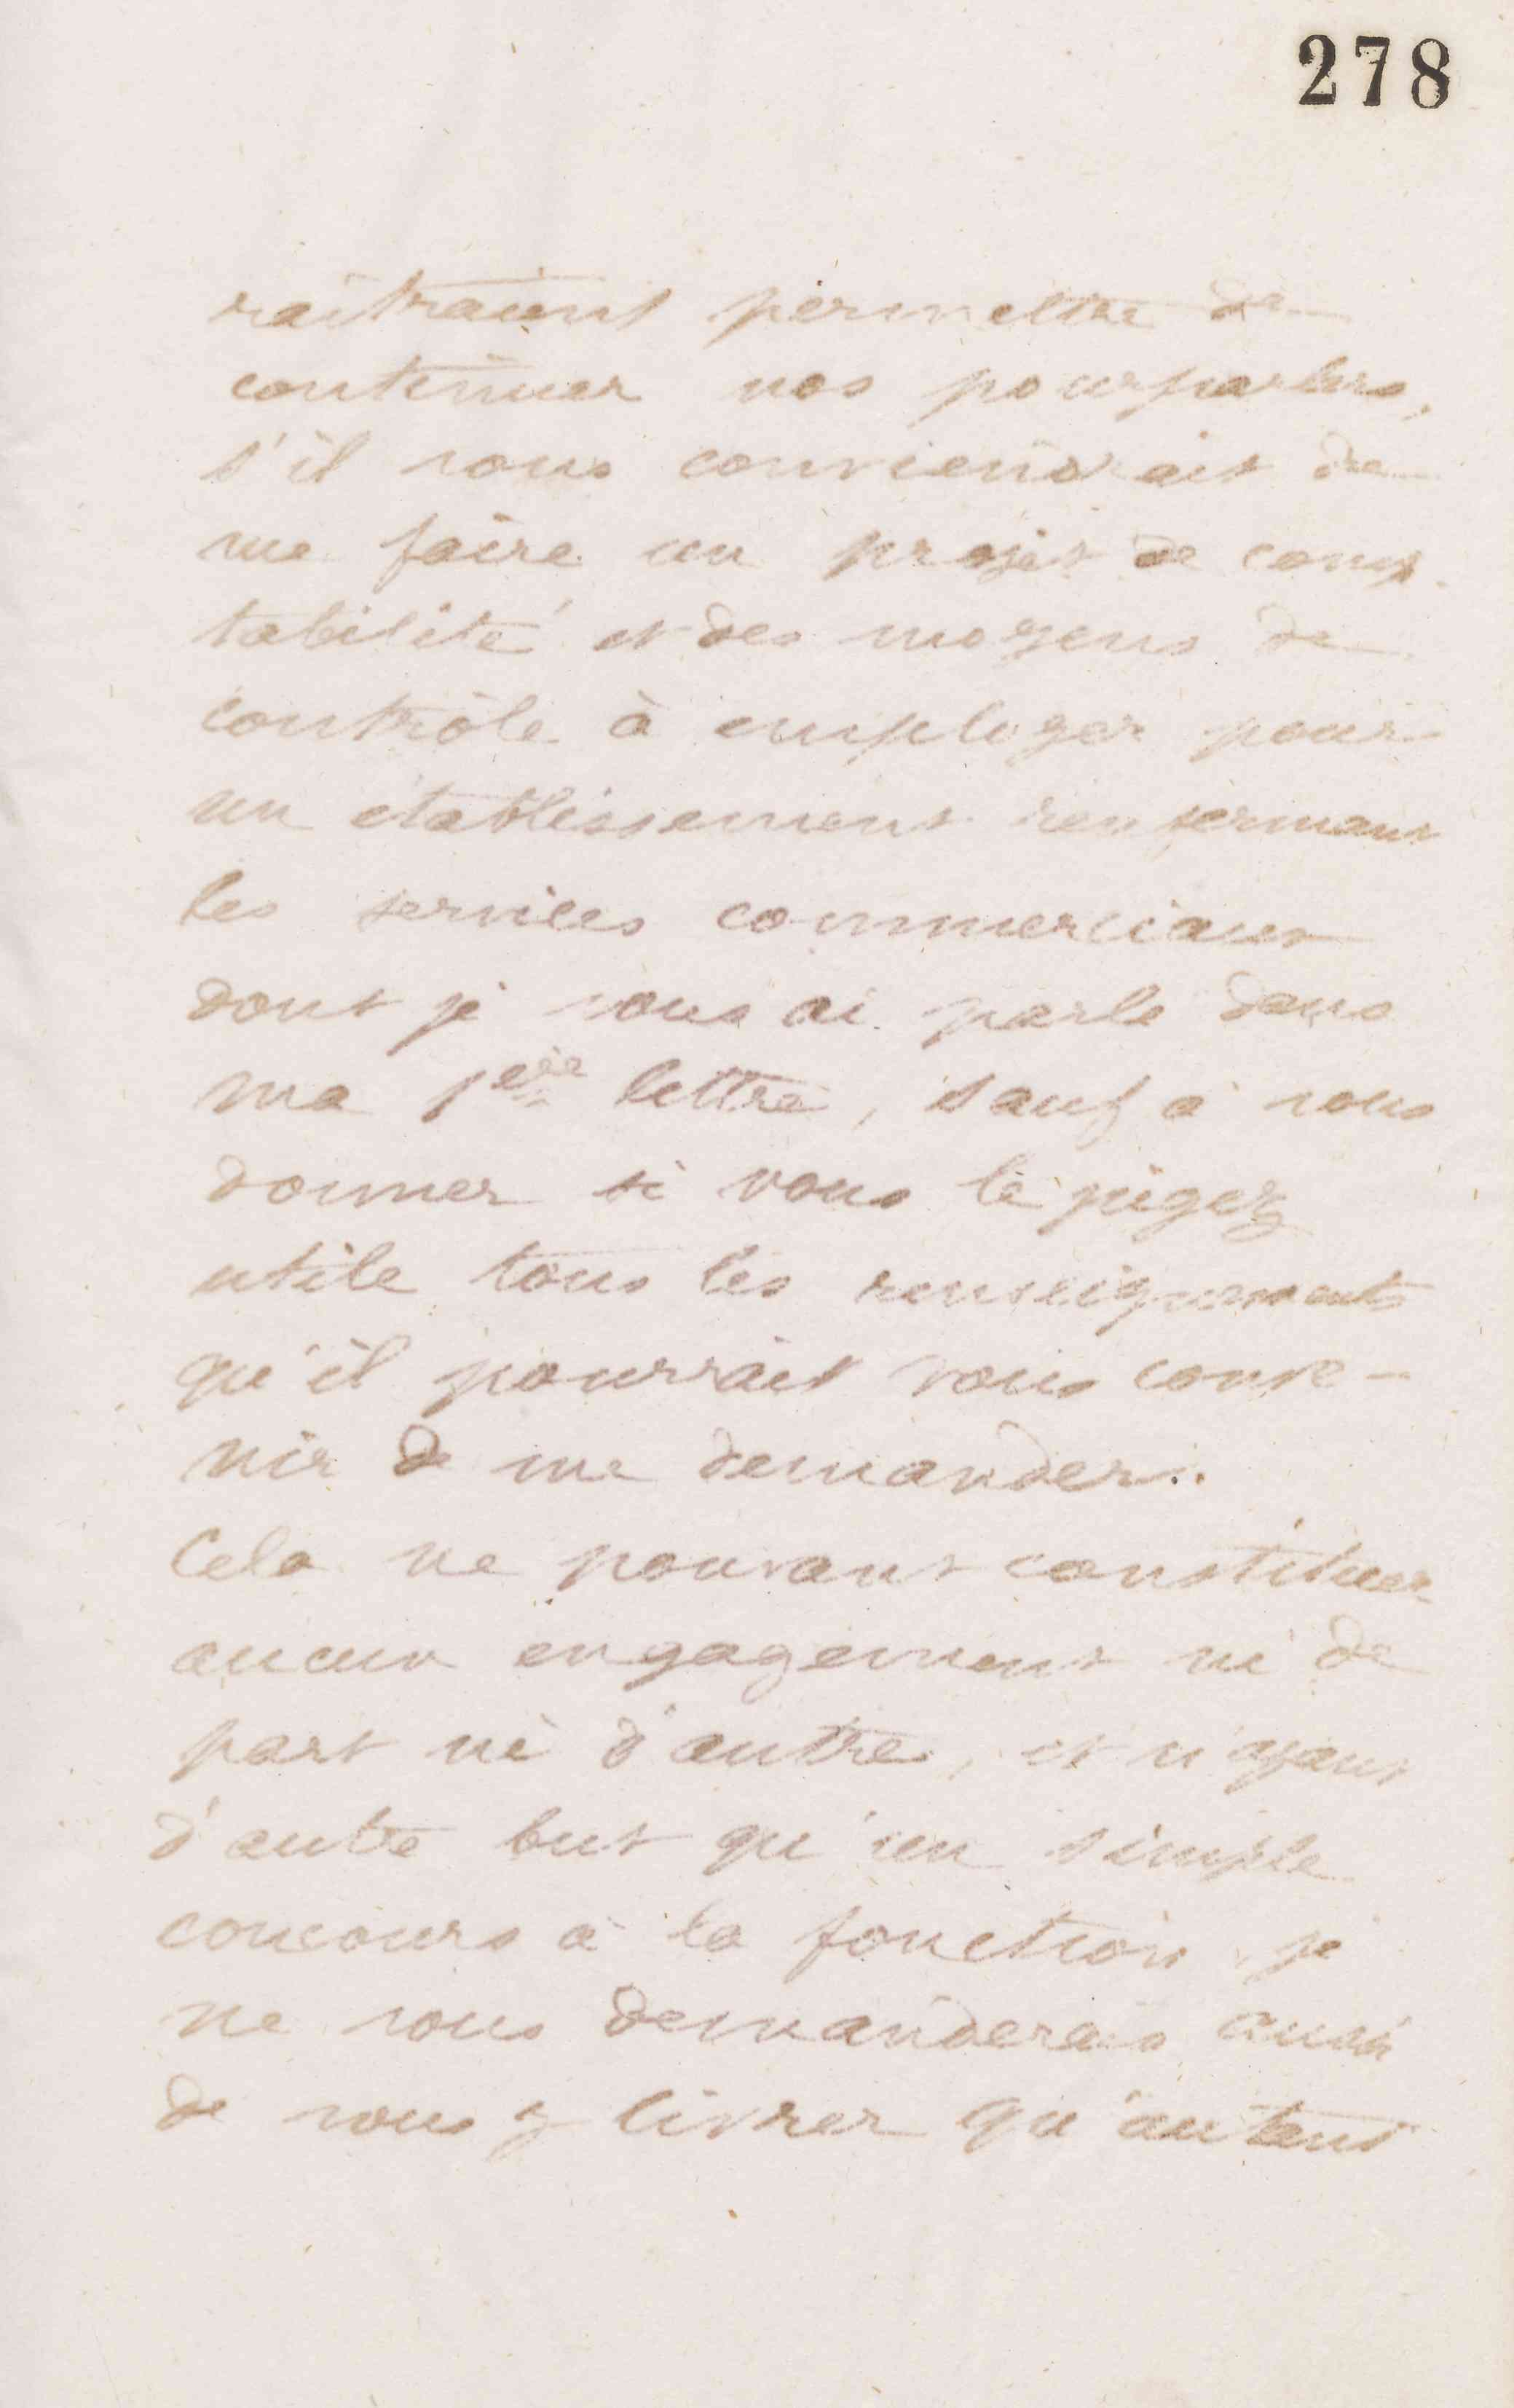 278
raîtraient permettre de
continuer nos pourparlers,
s'il vous conviendrait de
me faire un projet de comp-
tabilité et des moyens de
contrôle à employer pour
un établissement renfermant
les services commerciaux
dont je vous ai parlé dans
ma 1ère lettre, sauf à vous
donner si vous le jugez
utile tous les renseignements
qu'il pourrait vous conve-
nir de me demander.
Cela ne pouvant constituer
aucun engagement ni de
part ni d'autre, et n'ayant
d'autre but qu'un simple
concours à la fonction je
ne vous demanderais aussi
de vous y livrer qu'autant